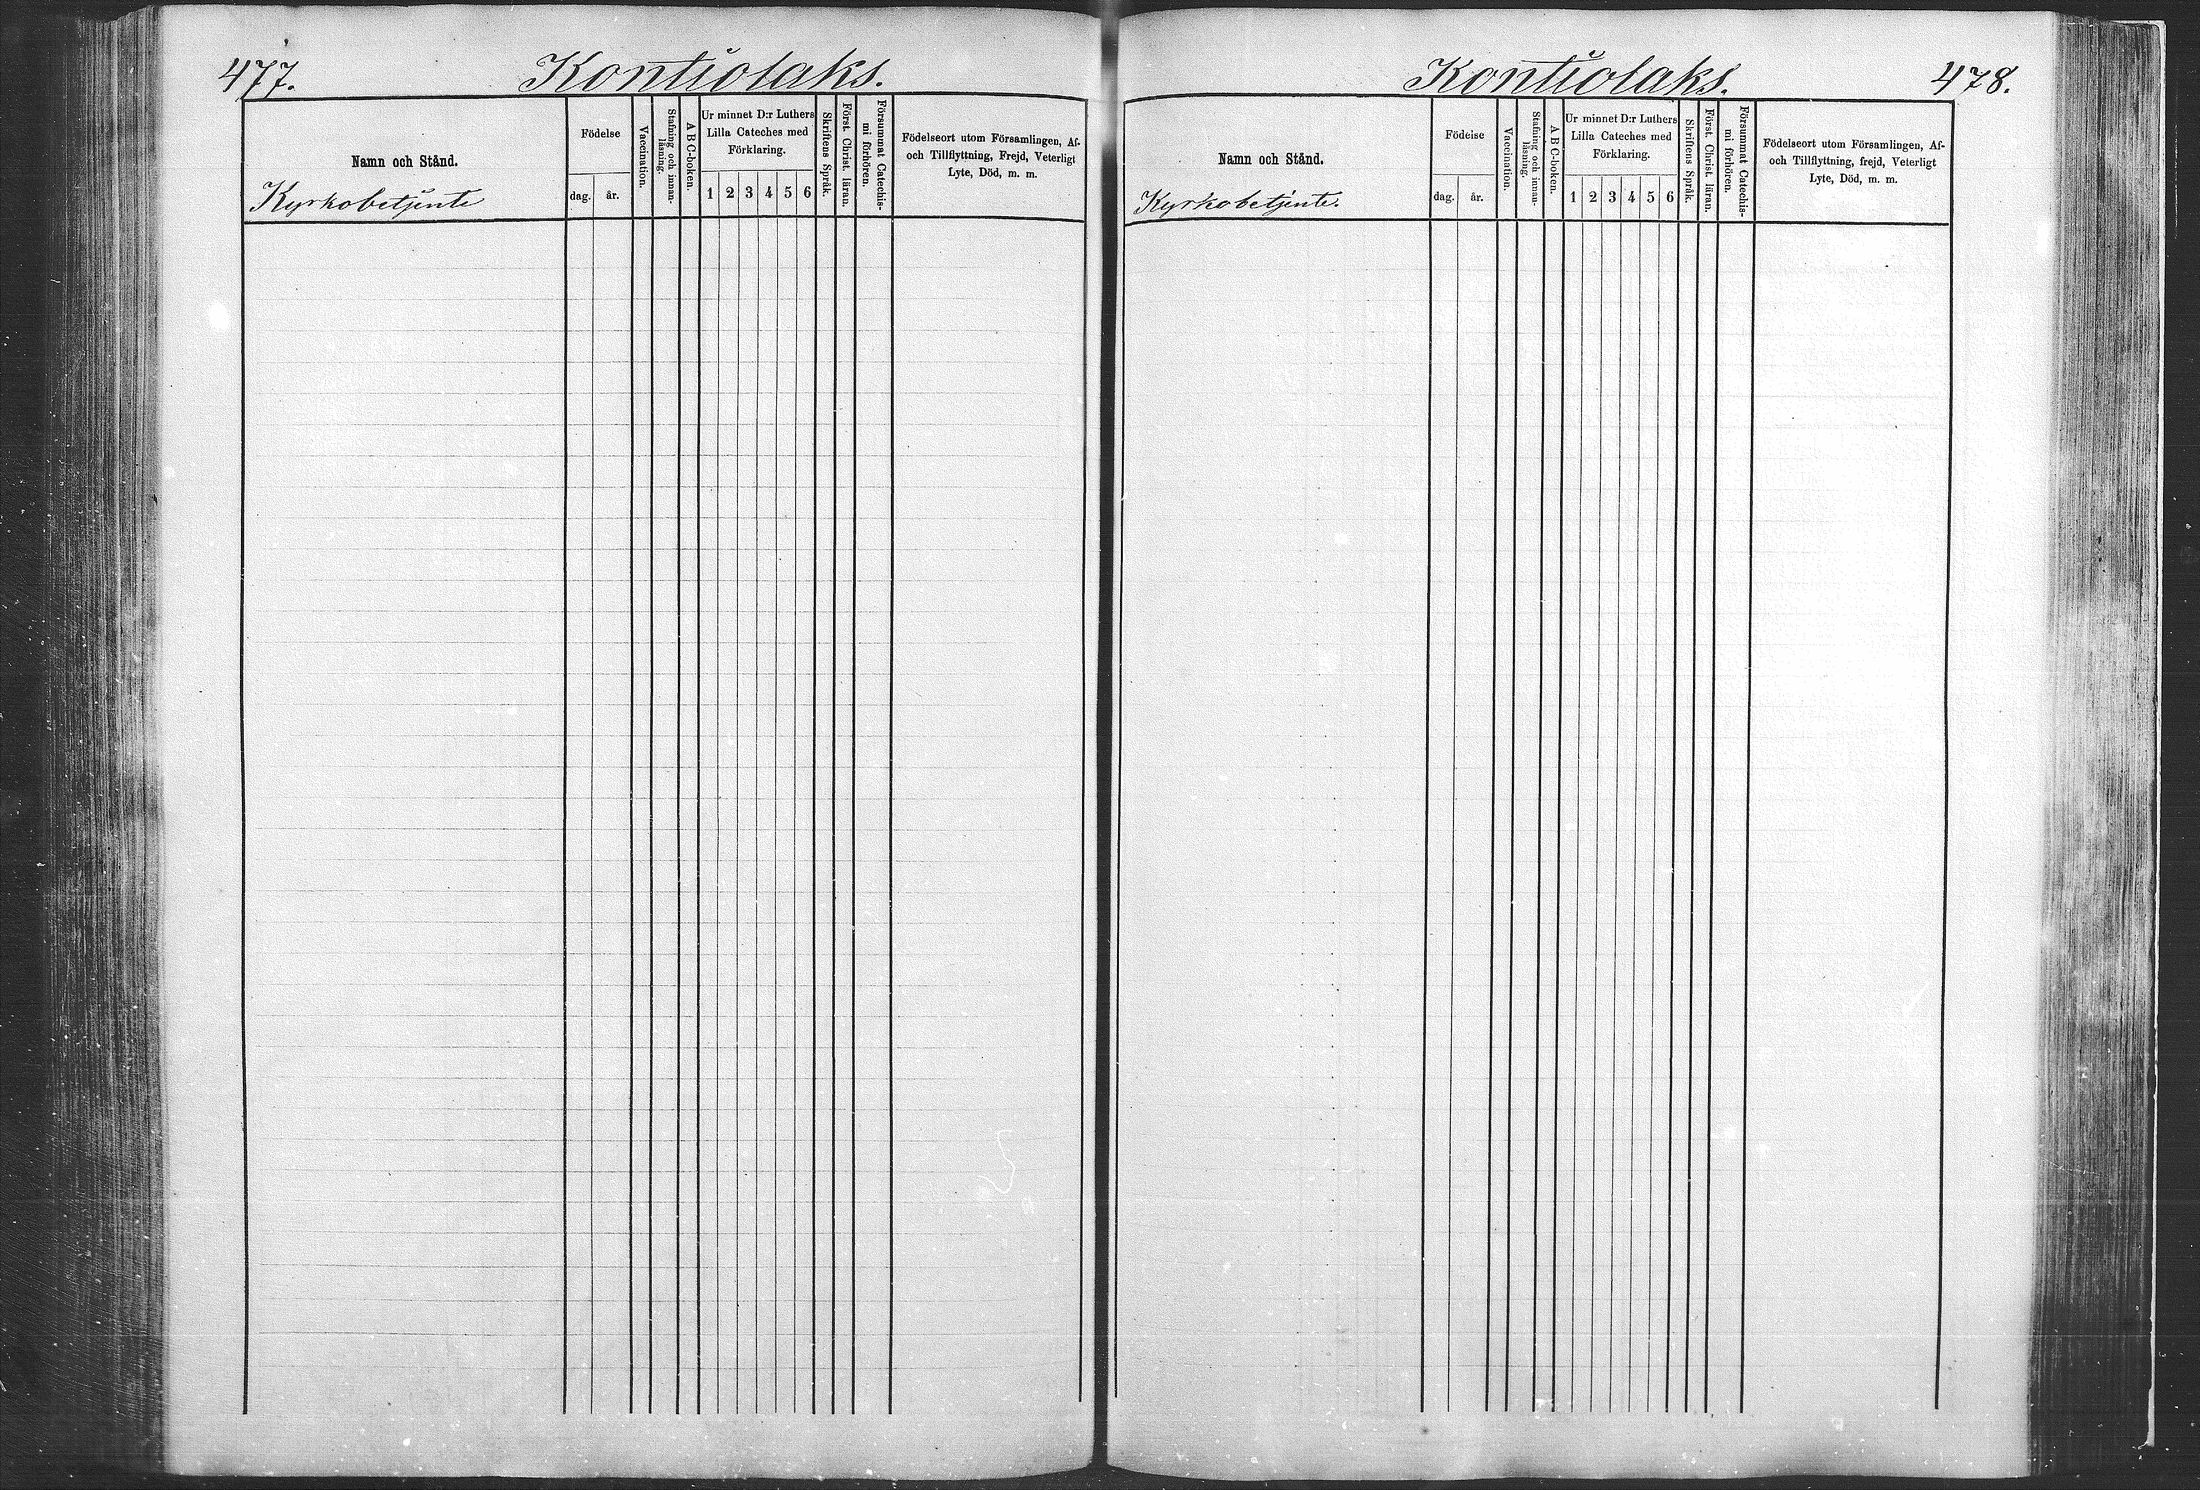 477.
Kontiolaks.
Namn och Stånd.
Kyrkobetjente
Födelse
dag. år.
Vaccination.
Stafning och innan-
läsning.
A B C-boken.
Ur minnet D:r Luthers
Lilla Cateches med
Förklaring.
1 2 3 4 5 6
Skriftens Språk.
Först. Christ. läran.
Försummat Catechis-
mi förhören.
Födelseort utom Församlingen, Af-
och Tillflyttning, Frejd, Veterligt
Lyte, Död, m. m.
Kontiolaks.
478.
Namn och Stånd.
Kyrkobetjente.
Födelse
dag. år.
Vaccination.
Stafning och innan-
läsning.
A B C-boken.
Ur minnet D:r Luthers
Lilla Cateches med
Förklaring.
1 2 3 4 5 6
Skriftens Språk.
Först. Christ. läran.
Försummat Catechis-
mi förhören.
Födelseort utom Församlingen, Af-
och Tillflyttning, frejd, Veterligt
Lyte, Död, m. m.